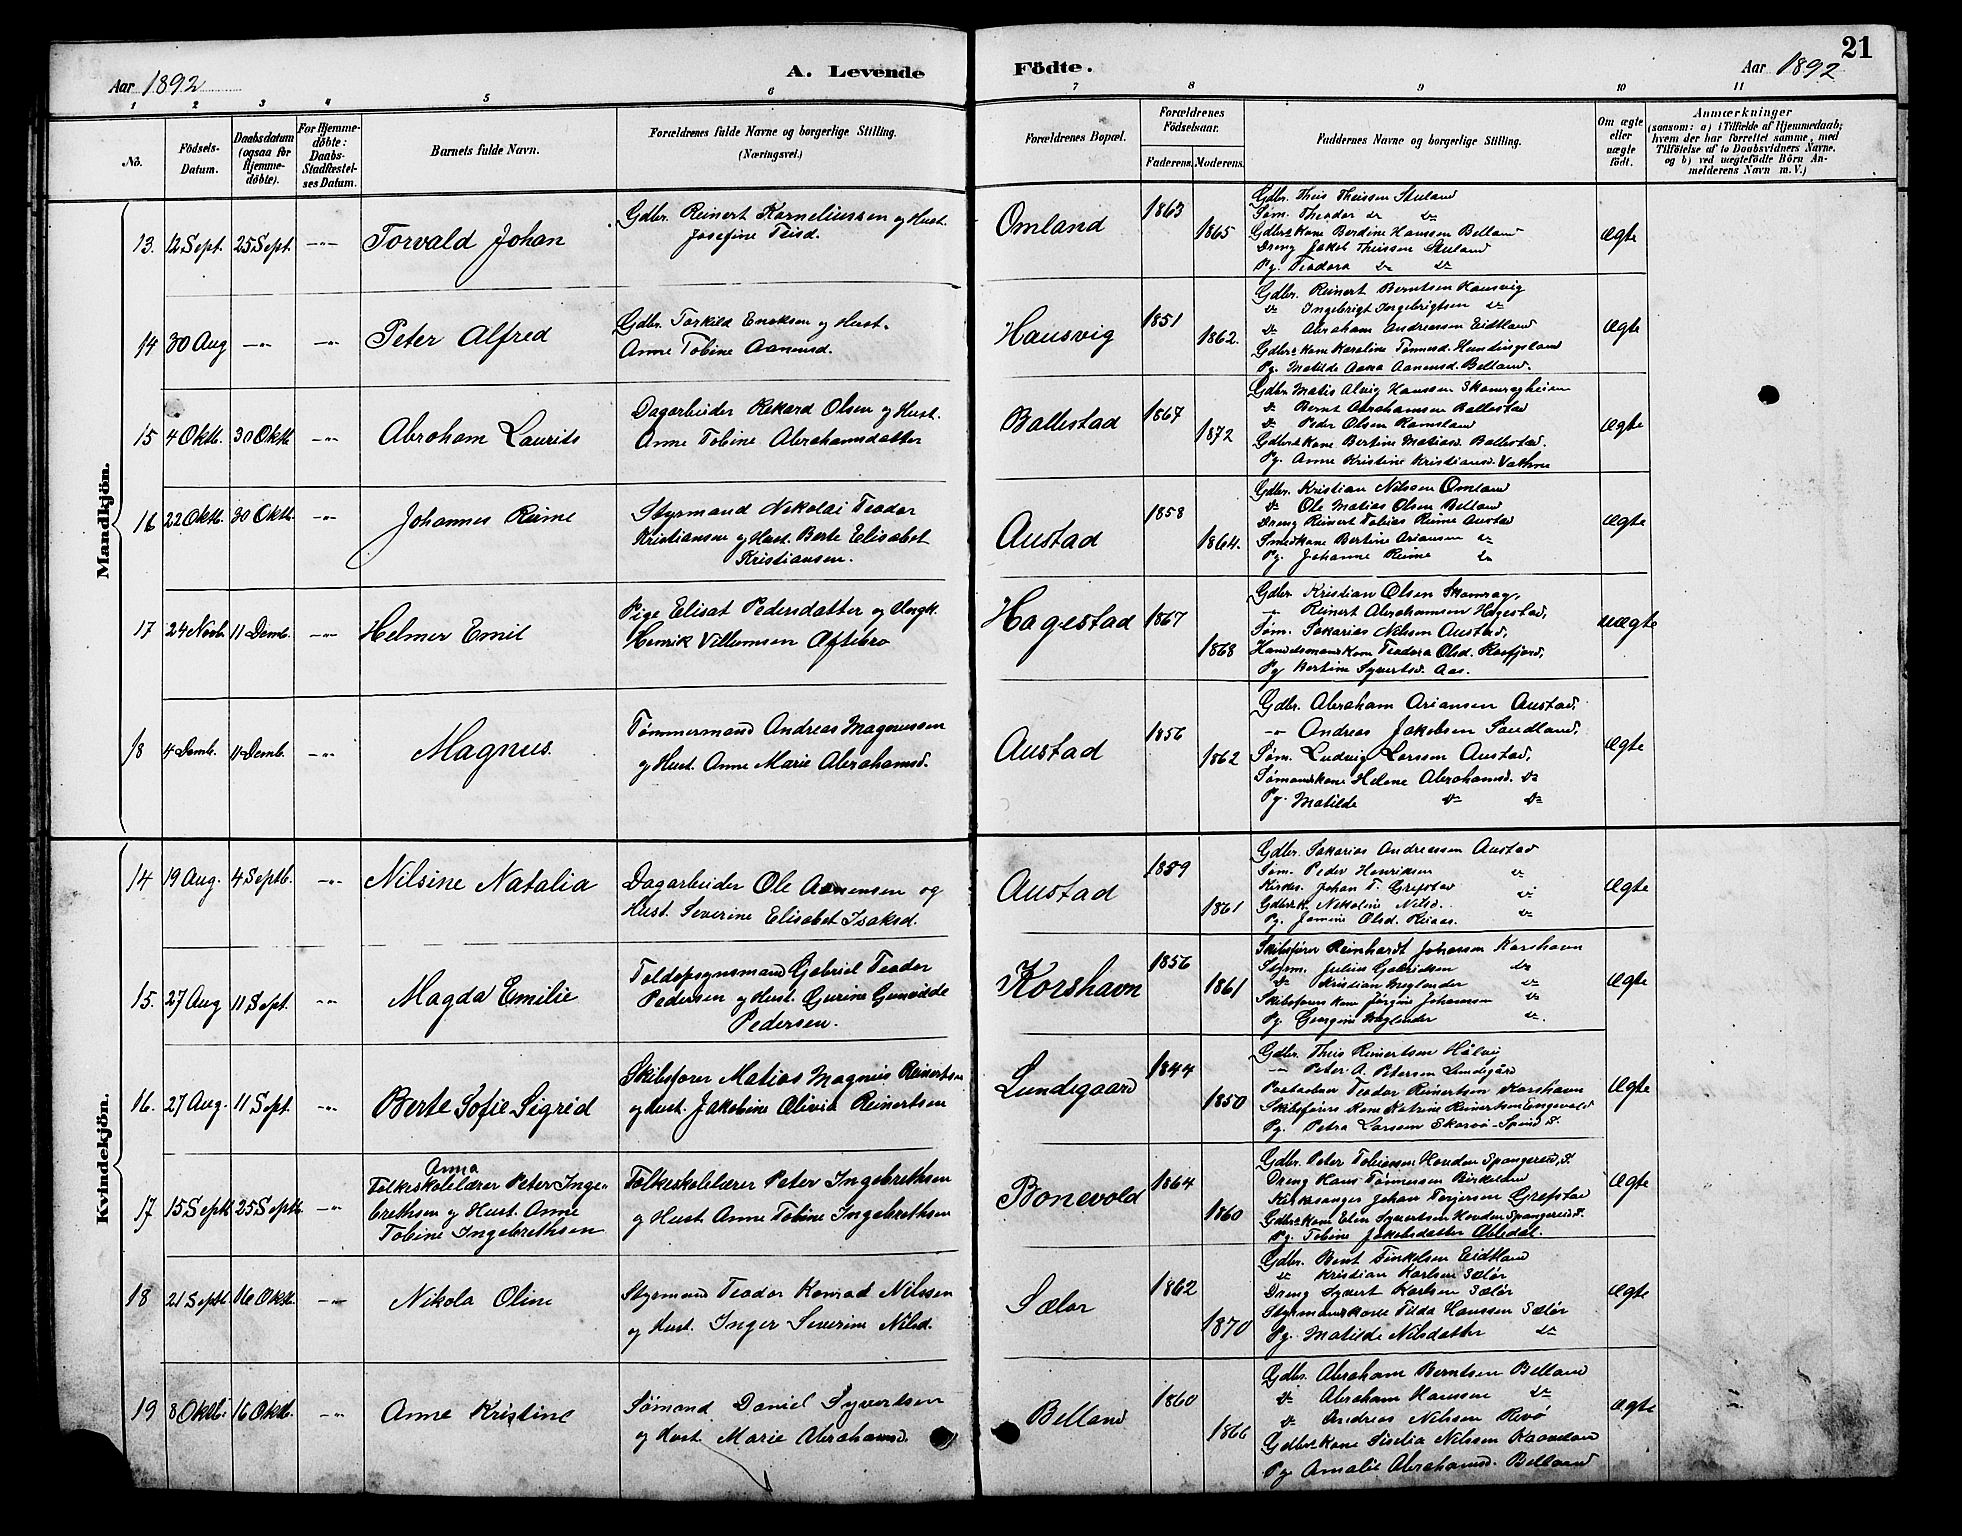 Aar 1892
A. Levende
Födte.
Aar 1892
21
1 2 3 4 5 6 7 8 9 10 11
No.
Födsels-
Datum.
Daabsdatum
(ogsaa for
Hjemme-
döbte).
For Hjemme-
döbte:
Daabs-
Stadfæstel-
ses Datum.
Barnets fulde Navn.
Forældrenes fulde Navne og borgerlige Stilling.
(Næringsvei.)
Forældrenes Bopæl.
Forældrenes
Födselsaar.
Faderens. Moderens.
Faddernes Navne og borgerlige Stilling.
Om ægte
eller
uægte
födt.
Anmærkninger
(saasom: a) i Tilfælde af Hjemmedaab;
hvem der har forrettet samme, med
Tilföielse af to Daabsvidners Navne,
og b) ved uægtefödte Börn An-
melderens Navn m. V.)
Mandkjön.
13. 12 Sept. 25 Sept. -"- Torvald Johan
Gdbr. Reinert Korneliussen og Hust.
Josefine Teisd.
Omland 1863 1865
Gdbr. Theis Theissen Stuland
Søm. Theodor do do
Gdbrs Kone Berdine Hanssen Belland
Dreng Jakob Theissen Stuland
Pg. Teodora do do
Ægte
14 30 Aug -"- -"- Peter Alfred
Gdbr. Torkild Eriksen og Hust.
Anne Tobine Aanensd.
Hausvig 1851 1862.
Gdbr. Reinert Berntsen Hausvig
do Ingebrigt Ingebrigtsen do
do Abraham Andreassen Eidtland
Gdbrs Kone Karoline Tønnesd. Hundingsland
Pg. Matilde Aasa Aanensd. Belland.
Ægte
15 4 Oktb. 30 Oktb -"- Abraham Laurits
Dagarbeider Rikard Olsen og Hust.
Anne Tobine Abrahamsdatter
Ballestad 1867 1872
Gdbr. Matis Alvig Hanssen Skamragheien
do Bernt Abrahamsen Ballestad
do Peder Olsen Ramsland
Gdbrs Kone Bertine Matiasd. Ballestad.
Pg. Anne Kristine Kristiansd. Vathne
Ægte
16 22 Oktb. 30 Oktb. -"- Johannes Reime
Styrmand Nikolai Teodor
Kristiansen og Hust. Berte Elisabet
Kristiansen.
Austad 1858 1864.
Gdbr. Kristian Nilssen Omland
do Ole Matias Olsen Belland
Dreng Reinert Tobias Reime Austad
Smedkone Bertine Ariansen do
Pg. Johanne Reime do
Ægte
17 24 Novb. 11 Demb. -"- Helmer Emil
Pige Elisat Pedersdatter og Ungk.
Henrik Villumsen Aftebro
Hagestad 1867 1868
Gdbr Kristian Olsen Skamrag,
-"- Reinert Abrahamsen Hagestad,
Søm. Sakarias Nilssen Austad,
Handelsmandskone Teodora Olsd. Rosfjord,
Pg Bertine Syvertsd. Aas.
uægte
18 4 Demb. 11 Demb. -"- Magnus.
Tømmermand Andreas Magnussen
og Hust. Anne Marie Abrahamsd.
Austad 1856 1862
Gdbr. Abraham Ariansen Austad,
-"- Andreas Jakobsen Sandland,
Søm. Ludvig Larssen Austad,
Sømandskone Helene Abrahamsd. do
Pg. Matilde do do
Ægte
Kvindekjön.
14 19 Aug. 4 Septb. -"- Nilsine Natalia
Dagarbeider Ole Aanensen og
Hust. Severine Elisabet Isaksd.
Austad 1859 1861
Gdbr. Sakarias Andreassen Austad
Søm. Peder Henriksen do
Kirkes. Johan T. Grefstad do
Gdbrsk. Nikoline Nilsd. do
Pg. Jamine Olsd. Reiaas.
Ægte
15. 27 Aug 11 Sept. -"- Magda Emilie
Toldopsynsmand Gabriel Teodor
Pedersen og Hust. Gurine Gunvalde
Pedersen.
Korshavn 1856 1861
Skibsfører Reinhardt Johansen Korshavn
Styrm. Julius Gabrielsen do
do Kristian Meglander do
Skibsførers Kone Jørgine Johansen do
Pg. Georgine Meglander do.
Ægte
16. 27 Aug. 11 Sept. -"- Berte Sofie Sigrid
Skibsfører Matias Magnus Reinertsen
og Hust. Jakobine Olivia Reinertsen
Lundegaard 1844 1850
Gdbr. Theis Reinertsen Hålvig
-"- Peter A. Petersen Lundegård
Postaabner Teodor Reinertsen Korshavn
Skibsførers Kone Katrine Reinertsen Engevold
Pg. Petra Larssen Skarvø-Spind S.
Ægte
17 15 Septb 25 Septb. -"- Anna
Folkeskolelærer Peter Inge-
brethsen og Hust. Anne
Tobine Ingebrethsen
Folkeskolelærer Peter Ingebrethsen
og Hust. Anne Tobine Ingebrethsen
Bonevold 1864 1860
Gdbr. Peter Tobiassen Houden Spangereid, S.
Dreng Hans Tønnessen Birkeland
Kirkesanger Johan Terjersen Grefstad
Gdbrs Kone Elen Syvertsen Houden Spangereid S.
Pg. Tobine Jakobsdatter Abledal.
Ægte
18 21 Septb 16 Oktb. -"- Nikola Oline
Styrmand Teodor Konrad Nilssen
og Hust. Inger Severine Nilsd.
Sælør 1862 1870
Gdbr. Bent Tinkelsen Eidtland
do Kristian Karlsen Sælør
Dreng Syvert Karlsen Sælør
Styrmandskone Tilda Hanssen Sælør
Pg. Matilde Nilsdatter do
Ægte
19 8 Oktb. 16 Oktb. -"- Anne Kristine
Sømand Daniel Syvertsen
og Hust. Marie Abrahamsd.
Belland 1860 1866
Gdbr. Abraham Berntsen Belland
do Abraham Hanssen do
do Andreas Nilssen Revø
Gdbrs Kone Siselia Nilssen Kaavdan
Pg. Amalie Abrahamsd. Belland
Ægte